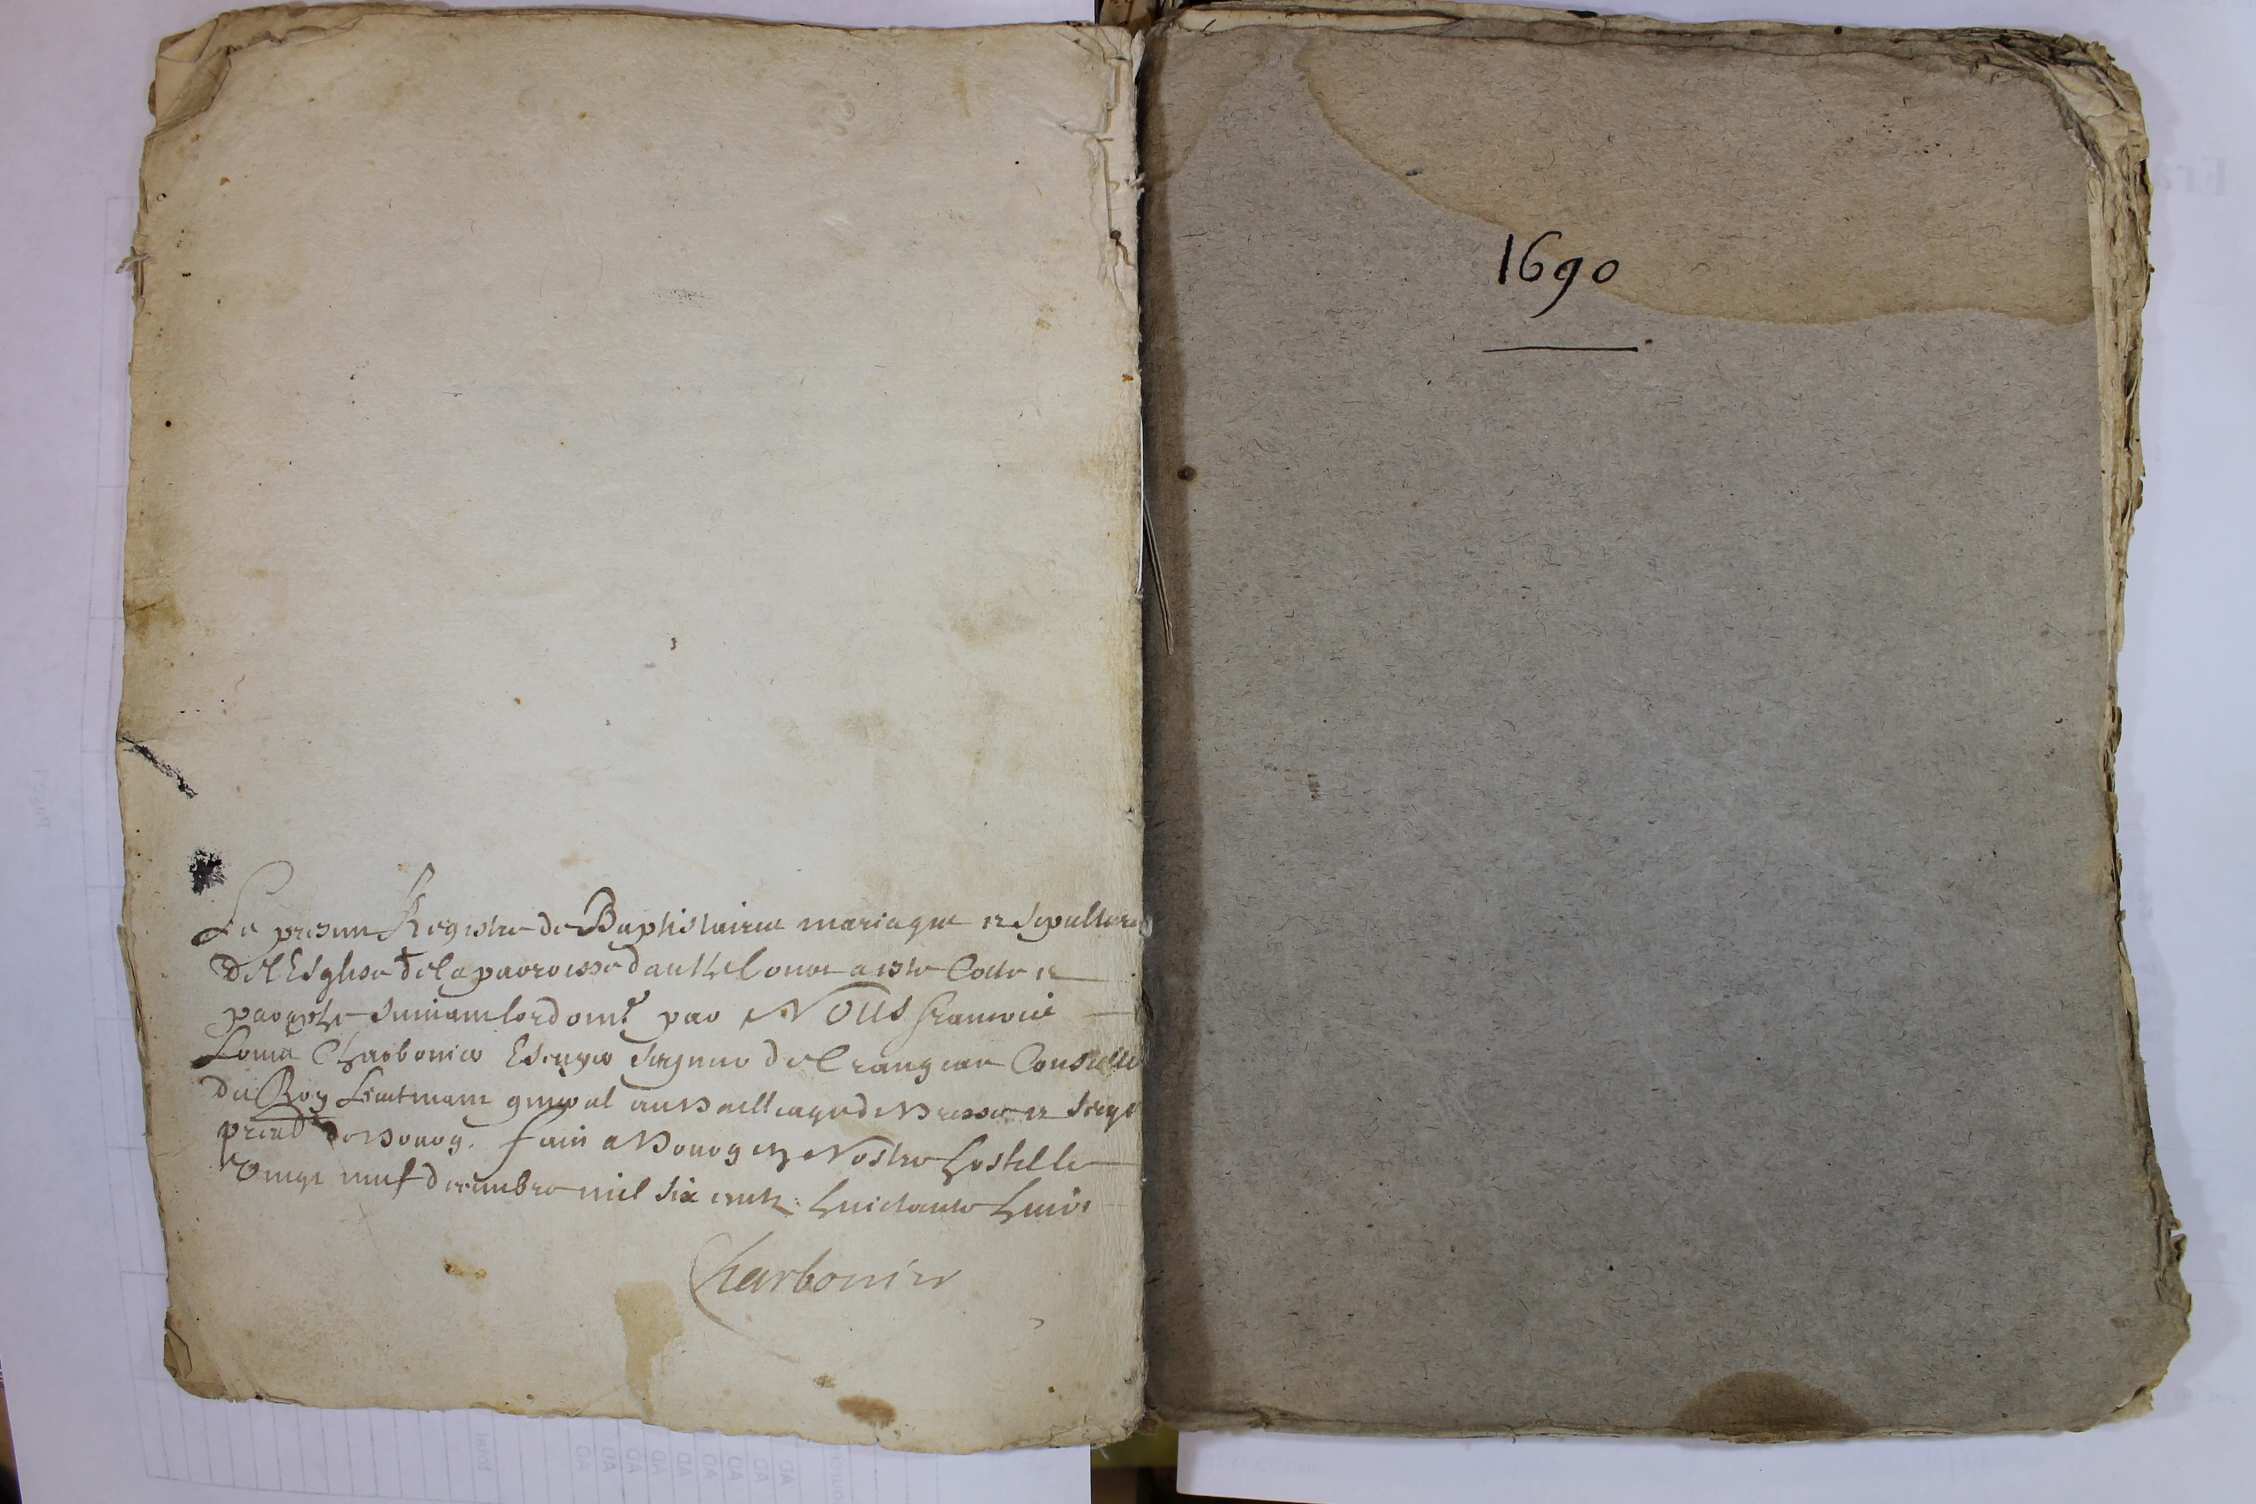 Le present Registre de Baptistaires mariages et sepultures
de l'Esglise de la parroisse d a este Cotte et
paraphe suivant lordonce par NOUS francois
Charbonier Escuyer seigneur de Crangeac Conseille
du Roy Lieutenant general au Bailliage de Bresse et siege
presidl de Bourg. faict a Bourg en Nostre hostel le
vingt neuf decembre mil six centz huictante huict
Charbonier
1690